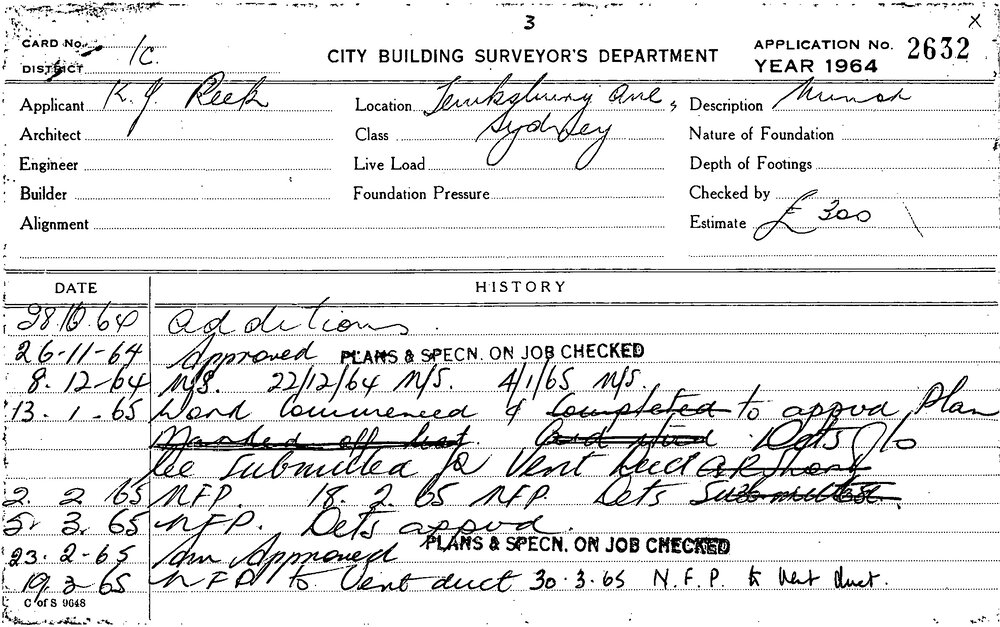 3
X
CARD No. 1C.
DISTRICT
CITY BUILDING SURVEYOR'S DEPARTMENT
APPLICATION No. 2632
YEAR 1964
Applicant K. J. Reek
Location Tewksbury Ave, Sydney
Description
Architect
Class
Nature of Foundation
Engineer
Live Load
Depth of Footings
Builder
Foundation Pressure
Checked by
Alignment
Estimate £ 300
DATE HISTORY
28.10.64 additions.
26-11-64 Approved PLANS & SPECN. ON JOB CHECKED
8.12-64 N/S. 22/12/64 N/S. 4/1/65 N/S.
13.1-65 Work Commenced & Completed to appvd Plan
Dets to
be Submitted for Vent Duct
2. 2 65 NFP. 18. 2. 65 NFP. Dets Submitted
5. 3. 65 NFP. Dets appvd.
23.2-65 Am Approved PLANS & SPECN. ON JOB CHECKED
19.3-65 NFP to Vent duct 30.3.65 N.F.P. to Vent duct.
C of S 9648